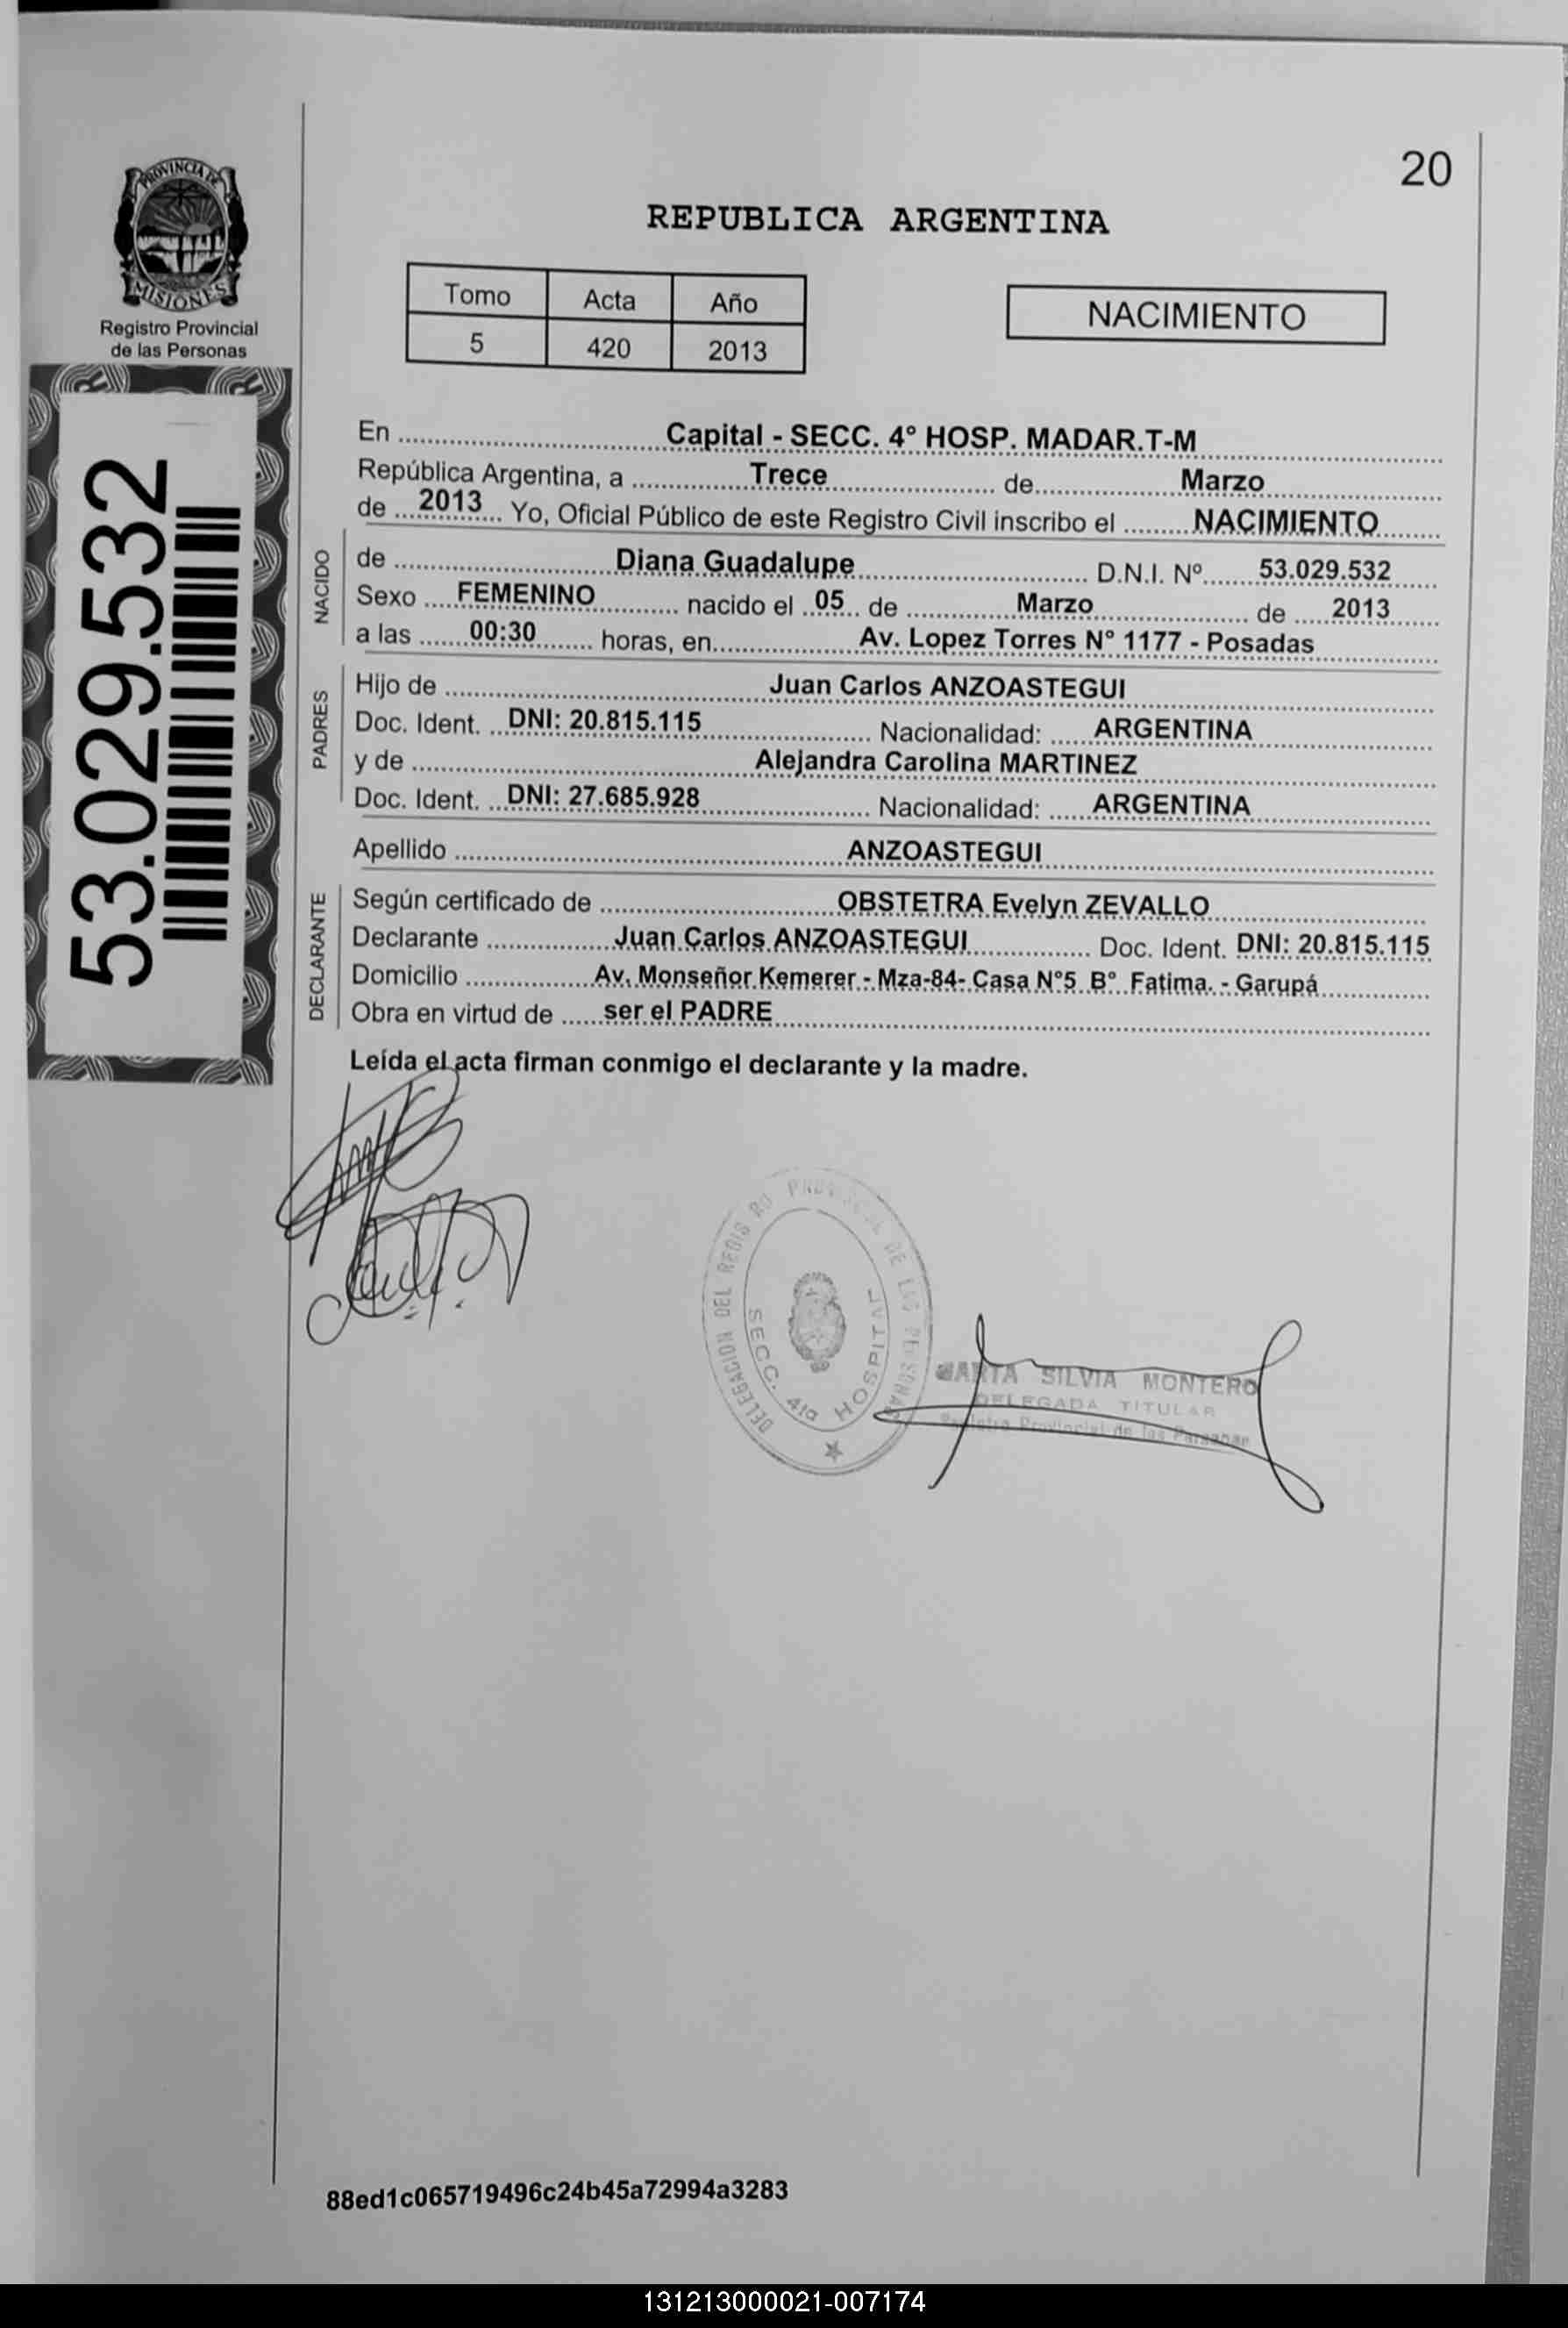 20
PROVINCIA DE
MISIONES
Registro Provincial
de las Personas
53.029.532
REPUBLICA ARGENTINA
Tomo Acta Año
5 420 2013
NACIMIENTO
En Capital - SECC. 4° HOSP. MADAR.T-M
República Argentina, a Trece de Marzo
de 2013 Yo, Oficial Público de este Registro Civil inscribo el NACIMIENTO
NACIDO
de Diana Guadalupe D.N.I. Nº 53.029.532
Sexo FEMENINO nacido el 05 de Marzo de 2013
a las 00:30 horas, en Av. Lopez Torres N° 1177 - Posadas
PADRES
Hijo de Juan Carlos ANZOASTEGUI
Doc. Ident. DNI: 20.815.115 Nacionalidad: ARGENTINA
y de Alejandra Carolina MARTINEZ
Doc. Ident. DNI: 27.685.928 Nacionalidad: ARGENTINA
Apellido ANZOASTEGUI
DECLARANTE
Según certificado de OBSTETRA Evelyn ZEVALLO
Declarante Juan Carlos ANZOASTEGUI Doc. Ident. DNI: 20.815.115
Domicilio Av. Monseñor Kemerer - Mza-84- Casa N°5 B° Fatima. - Garupá
Obra en virtud de ser el PADRE
Leída el acta firman conmigo el declarante y la madre.
DELEGACION DEL REGISTRO PROVINCIAL DE LAS PERSONAS
SECC. 4ta HOSPITAL
MARTA SILVIA MONTERO
DELEGADA TITULAR
Registro Provincial de las Personas
88ed1c065719496c24b45a72994a3283
131213000021-007174